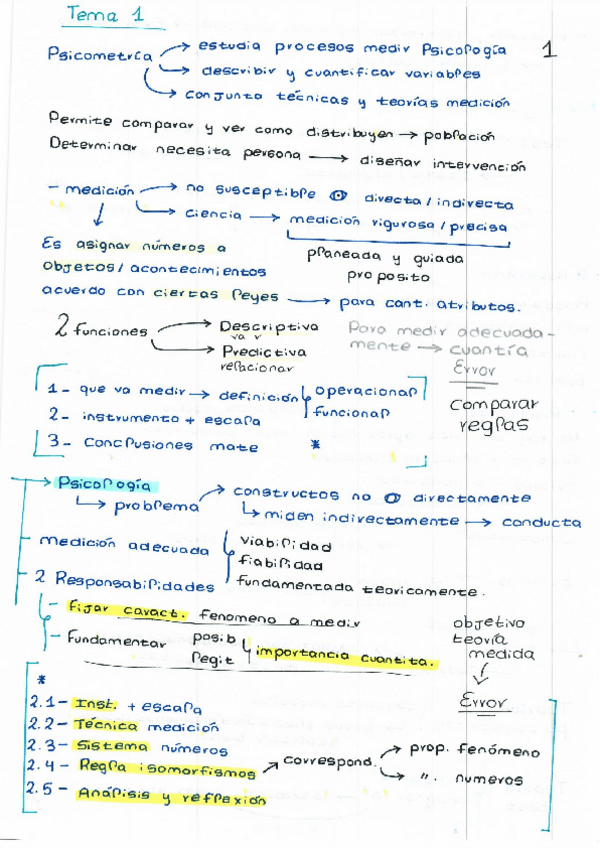 Tema 1
1
Psicometría → estudia procesos medir Psicología
→ describir y cuantificar variables
→ conjunto técnicas y teorías medición
Permite comparar y ver como distribuyen → población
Determinar necesita persona → diseñar intervención
- medición → no susceptible 👁 directa / indirecta
→ ciencia → medición rigurosa / precisa
Es asignar números a
objetos / acontecimientos
acuerdo con ciertas leyes → para cant. atributos.
planeada y guiada
proposito
2 funciones → Descriptiva
var
→ Predictiva
relacionar
Para medir adecuada-
mente → cuantía
Error
comparar
reglas
1- que va medir → definición operacional
funcional
2- instrumento + escala
3- conclusiones mate *
→ Psicología
→ problema → constructos no 👁 directamente
→ miden indirectamente → conducta
- medición adecuada viabilidad
fiabilidad
fundamentada teoricamente.
- 2 Responsabilidades
- Fijar caract. fenomeno a medir
- Fundamentar posib
legit importancia cuantita.
objetivo
teoría
medida
Error
*
2.1- Inst. + escala
2.2- Técnica medición
2.3- Sistema números
2.4- Regla isomorfismos → correspond. → prop. fenómeno
→ ". numeros
2.5- Análisis y reflexión